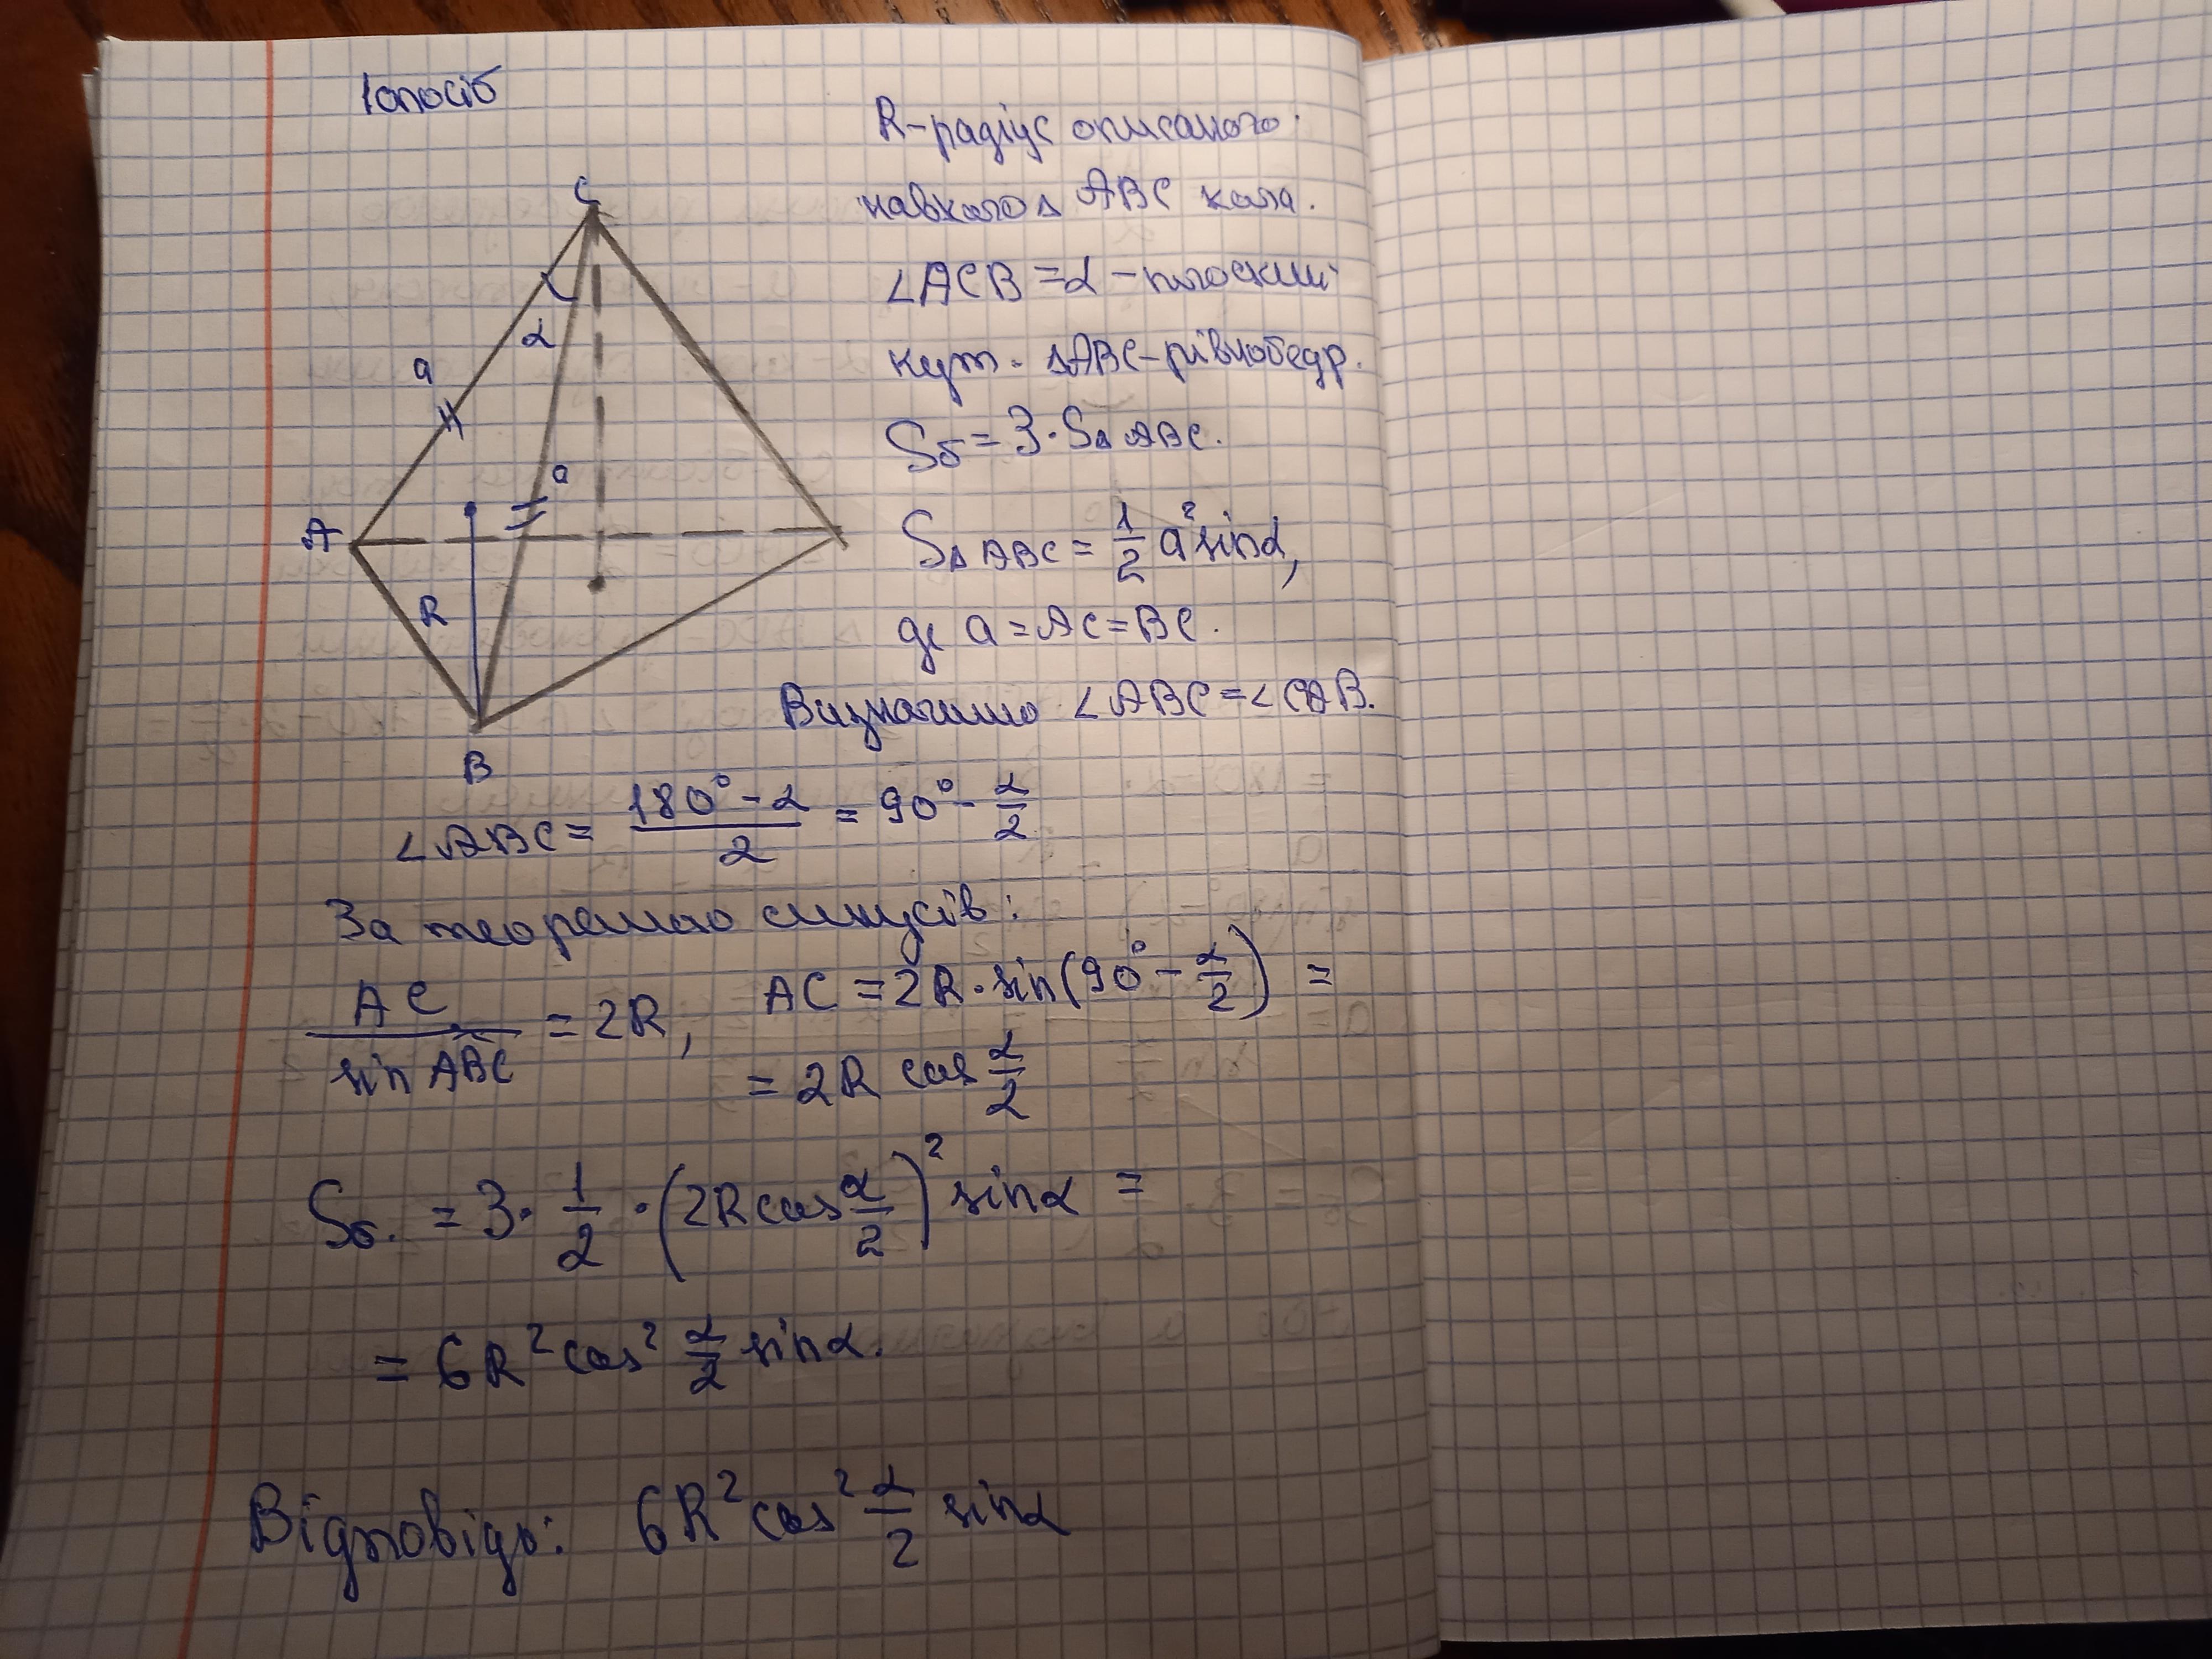 1 спосіб
R-радіус описаного
навколо Δ ABC кола.
∠ACB = α - плоский
кут. ΔABC-рівнобедр.
Sб = 3·SΔ ABC.
SΔ ABC = 1/2 a² sinα,
де a = AC = BC.
Визначимо ∠ABC = ∠CAB.
C
α
a
a
A
R
B
∠ABC = (180° - α)/2 = 90° - α/2
За теоремою синусів:
AC/sin ABC = 2R, AC = 2R·sin(90° - α/2) =
= 2R cos α/2
Sб. = 3·1/2·(2R cos α/2)² sinα =
= 6R² cos² α/2 sinα.
Відповідь: 6R² cos² α/2 sinα